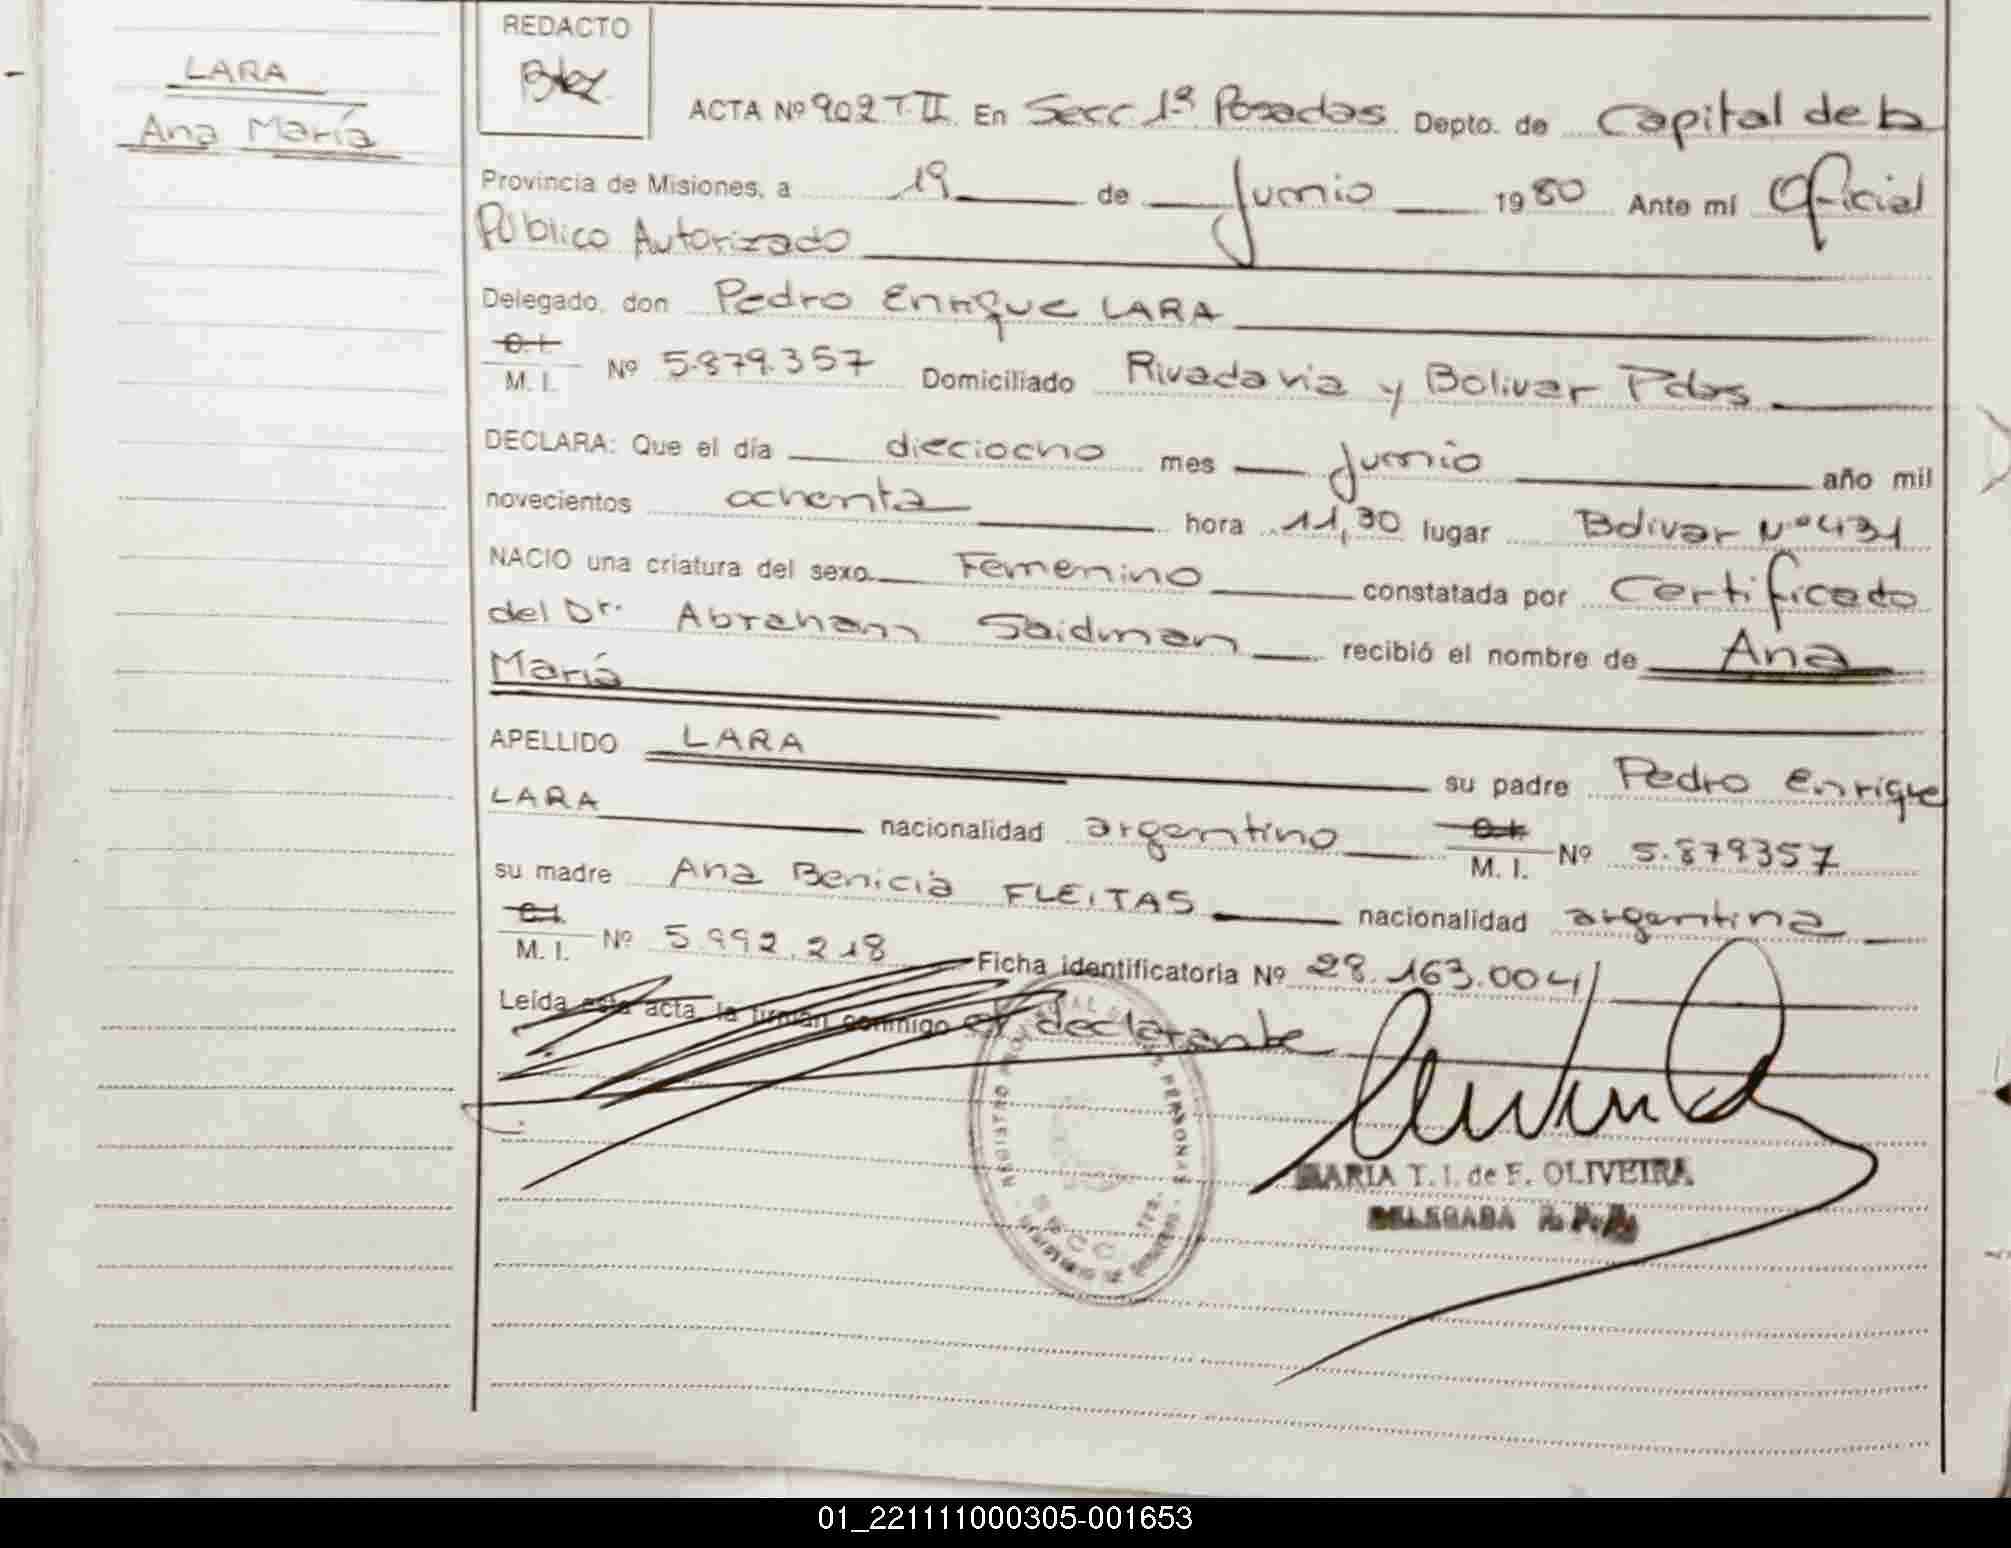 LARA
Ana María
REDACTO
ACTA Nº 902 T.II. En Secc. 1ª Posadas Depto. de Capital de la
Provincia de Misiones, a 19 de Junio 1980 Ante mí Oficial
Público Autorizado
Delegado, don Pedro Enrique LARA
C.I.
M. I. Nº 5.879.357 Domiciliado Rivadavia y Bolivar Pdas
DECLARA: Que el día dieciocho mes Junio año mil
novecientos ochenta hora 11,30 lugar Bolivar Nº 431
NACIO una criatura del sexo Femenino constatada por Certificado
del Dr. Abraham Saidman recibió el nombre de Ana
María
APELLIDO LARA su padre Pedro Enrique
LARA nacionalidad argentino C.I. M. I. Nº 5.879357
su madre Ana Benicia FLEITAS nacionalidad argentina
C.I.
M. I. Nº 5.992.218 Ficha identificatoria Nº 28.163.004
Leída esta acta, la firman conmigo el declarante
REGISTRO PROVINCIAL DE LAS PERSONAS
SECC. 1ra.
MARIA T. I. de F. OLIVEIRA
DELEGADA
01_221111000305-001653